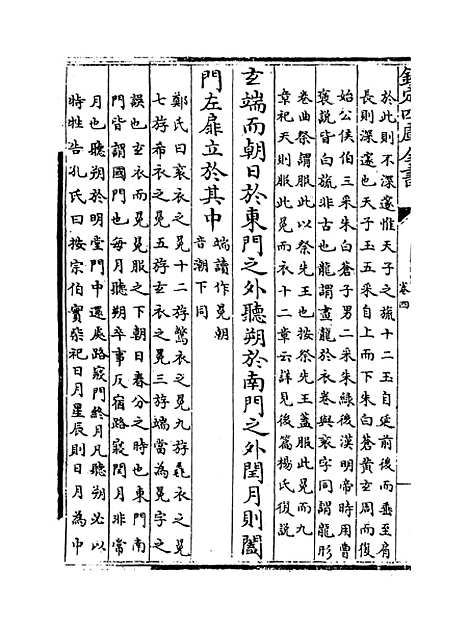 欽定四庫全書
卷四
於此則不深邃惟天子之旒十二玉自延前後而垂至肩
長則深邃也天子玉五采自上而下朱白蒼黄玄周而復
始公侯伯三采朱白蒼子男二采朱綠後漢明帝時用曹
褒說皆白旒非古也龍謂畫龍於衣卷與衮字同謂龍形
卷曲祭謂服此以祭先王也按祭先王蓋服此冕而九
章祀天則服此冕而衣十二章云詳見後篇楊氏復說
玄端而朝日於東門之外聽朔於南門之外閏月則闔
門左扉立於其中
端讀作冕朝
音潮下同
鄭氏曰衮衣之冕十二斿鷩衣之冕九斿毳衣之冕
七斿希衣之冕五斿玄衣之冕三斿端當為冕字之
誤也玄衣而冕冕服之下朝日春分之時也東門南
門皆謂國門也每月聽朔卒事反宿路寢閏月非常
月也聽朔於明堂門中還處路寢門終月凡聽朔必以
特牲告孔氏曰按宗伯實柴祀日月星辰則日月為中